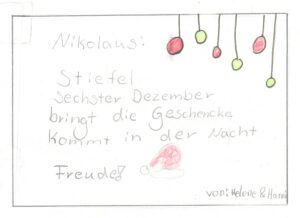 Nikolaus:
Stiefel
sechster Dezember
bringt die Geschencke
kommt in der Nacht
Freude!
von: Helene & Hanni